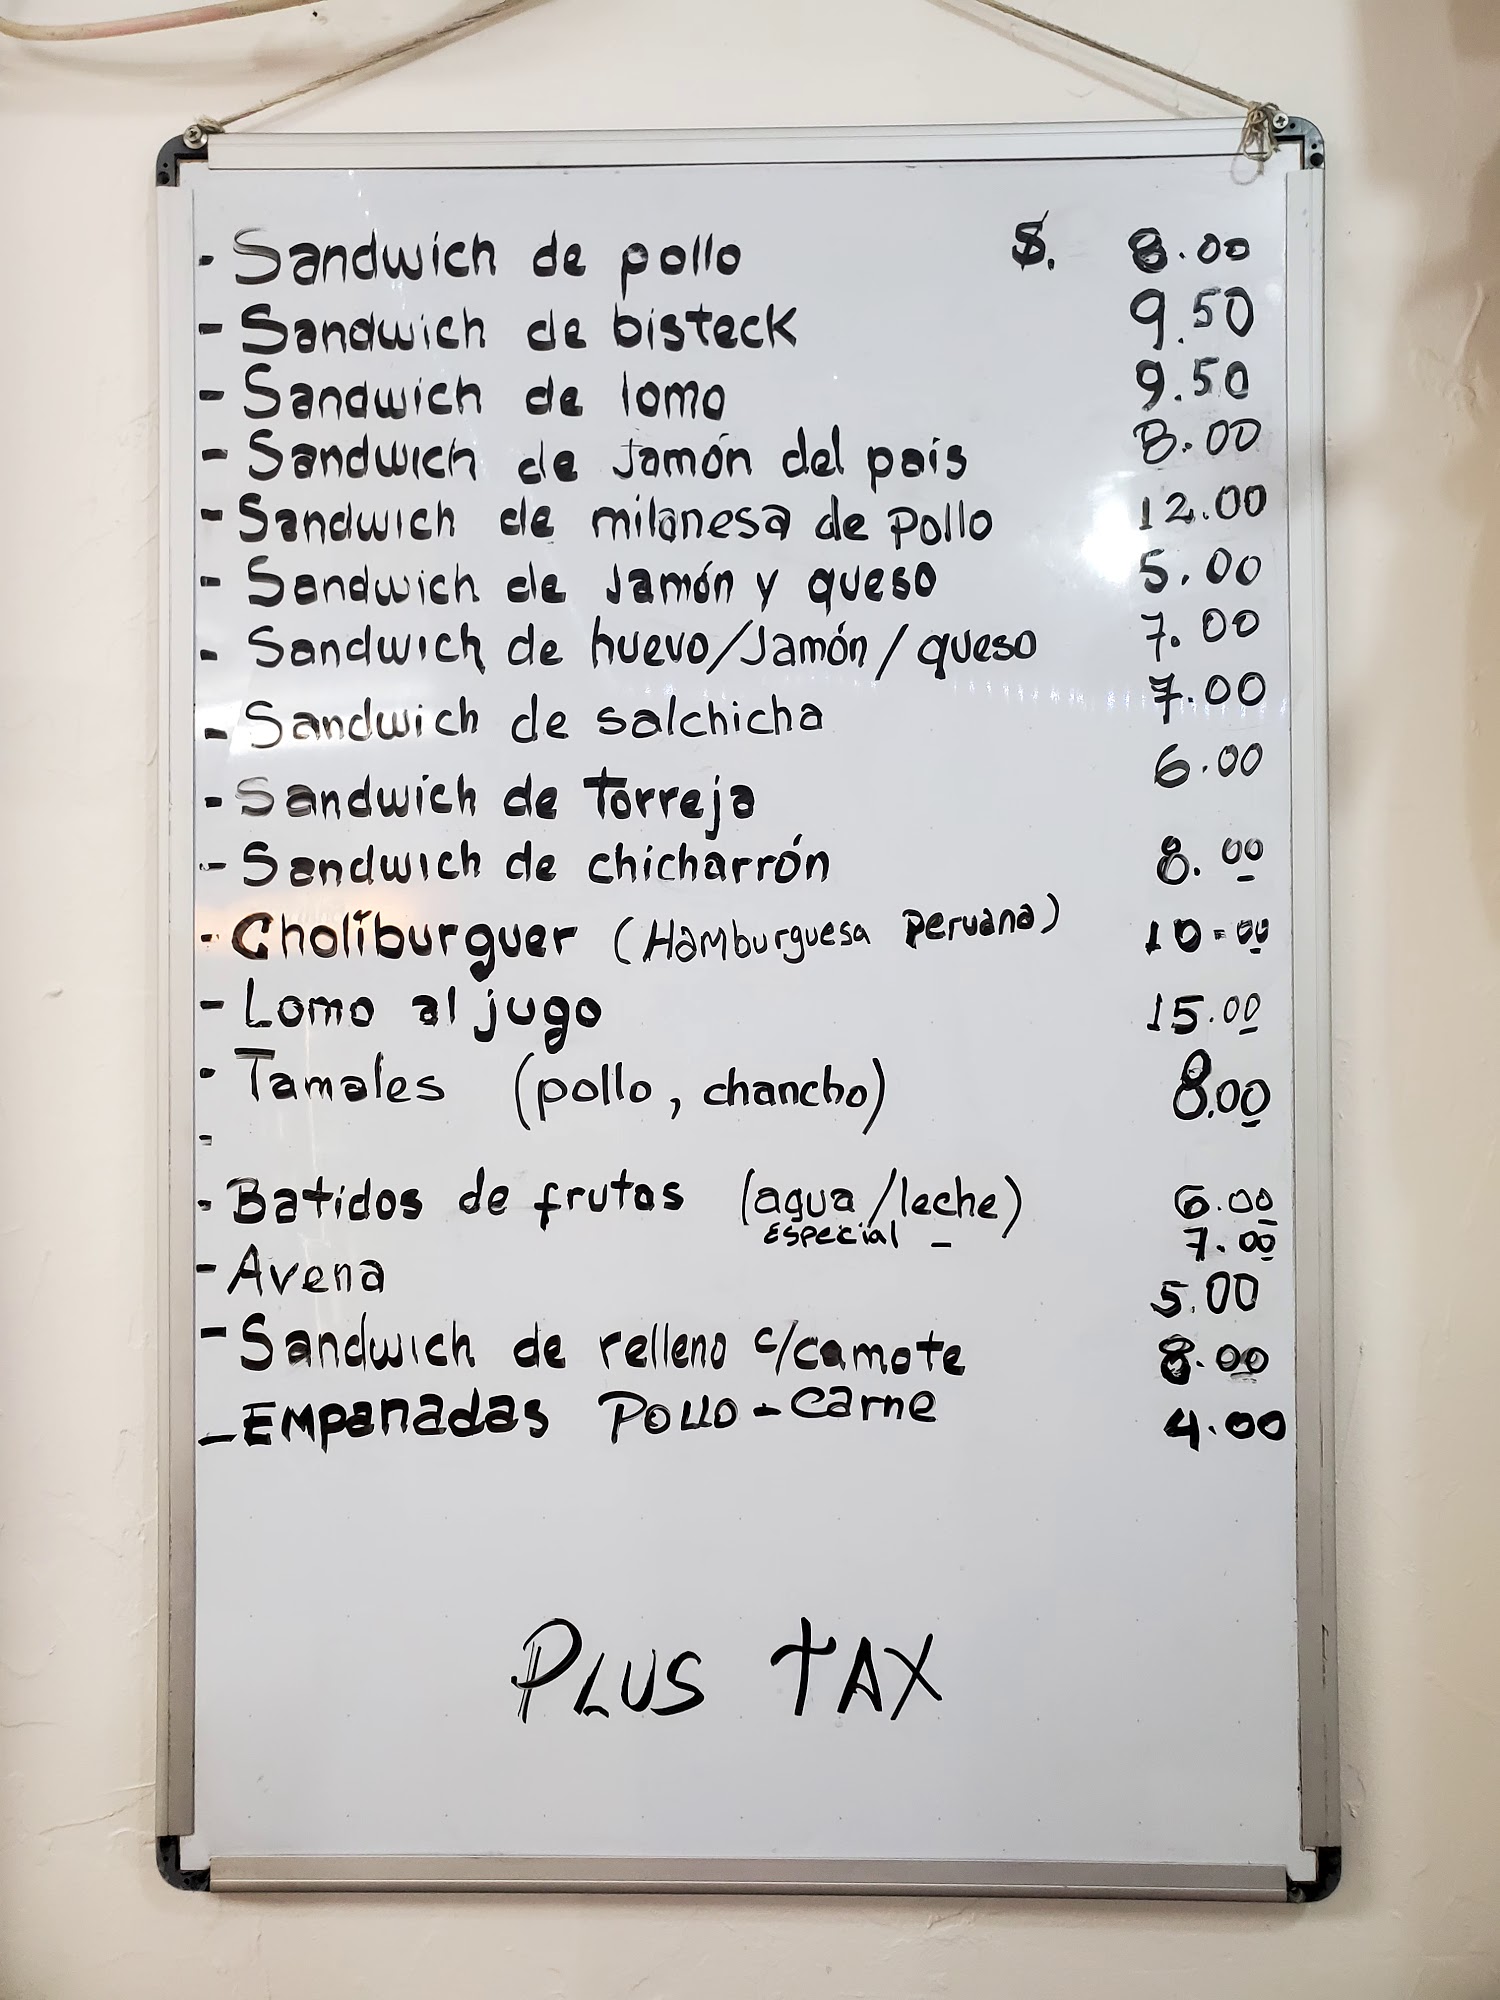 - Sandwich de pollo $. 8.00
- Sandwich de bisteck 9.50
- Sandwich de lomo 9.50
- Sandwich de Jamón del pais 8.00
- Sandwich de milanesa de pollo 12.00
- Sandwich de Jamón y queso 5.00
- Sandwich de huevo/Jamón/queso 7.00
- Sandwich de salchicha 7.00
- Sandwich de Torreja 6.00
- Sandwich de chicharrón 8.00
- Choliburguer (Hamburguesa peruana) 10.00
- Lomo al jugo 15.00
- Tamales (pollo, chancho) 8.00
-
- Batidos de frutas (agua/leche) 6.00
Especial - 7.00
- Avena 5.00
- Sandwich de relleno c/camote 8.00
- EMPanadas POLLO - Carne 4.00
PLUS TAX